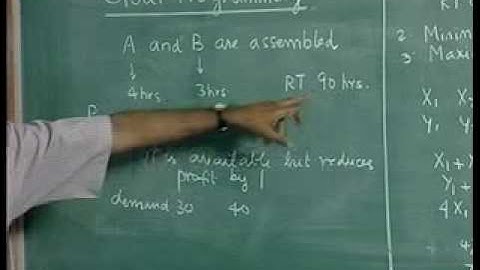 Goal Programming
A and B are assembled
↓ ↓
4hrs. 3hrs RT 90 hrs.
It is available but reduces
profit by 1
demand 30 40
RT
2. Minim
3. Maxi
X₁ X
Y₁ Y
X₁ +
Y₁ +
4X₁